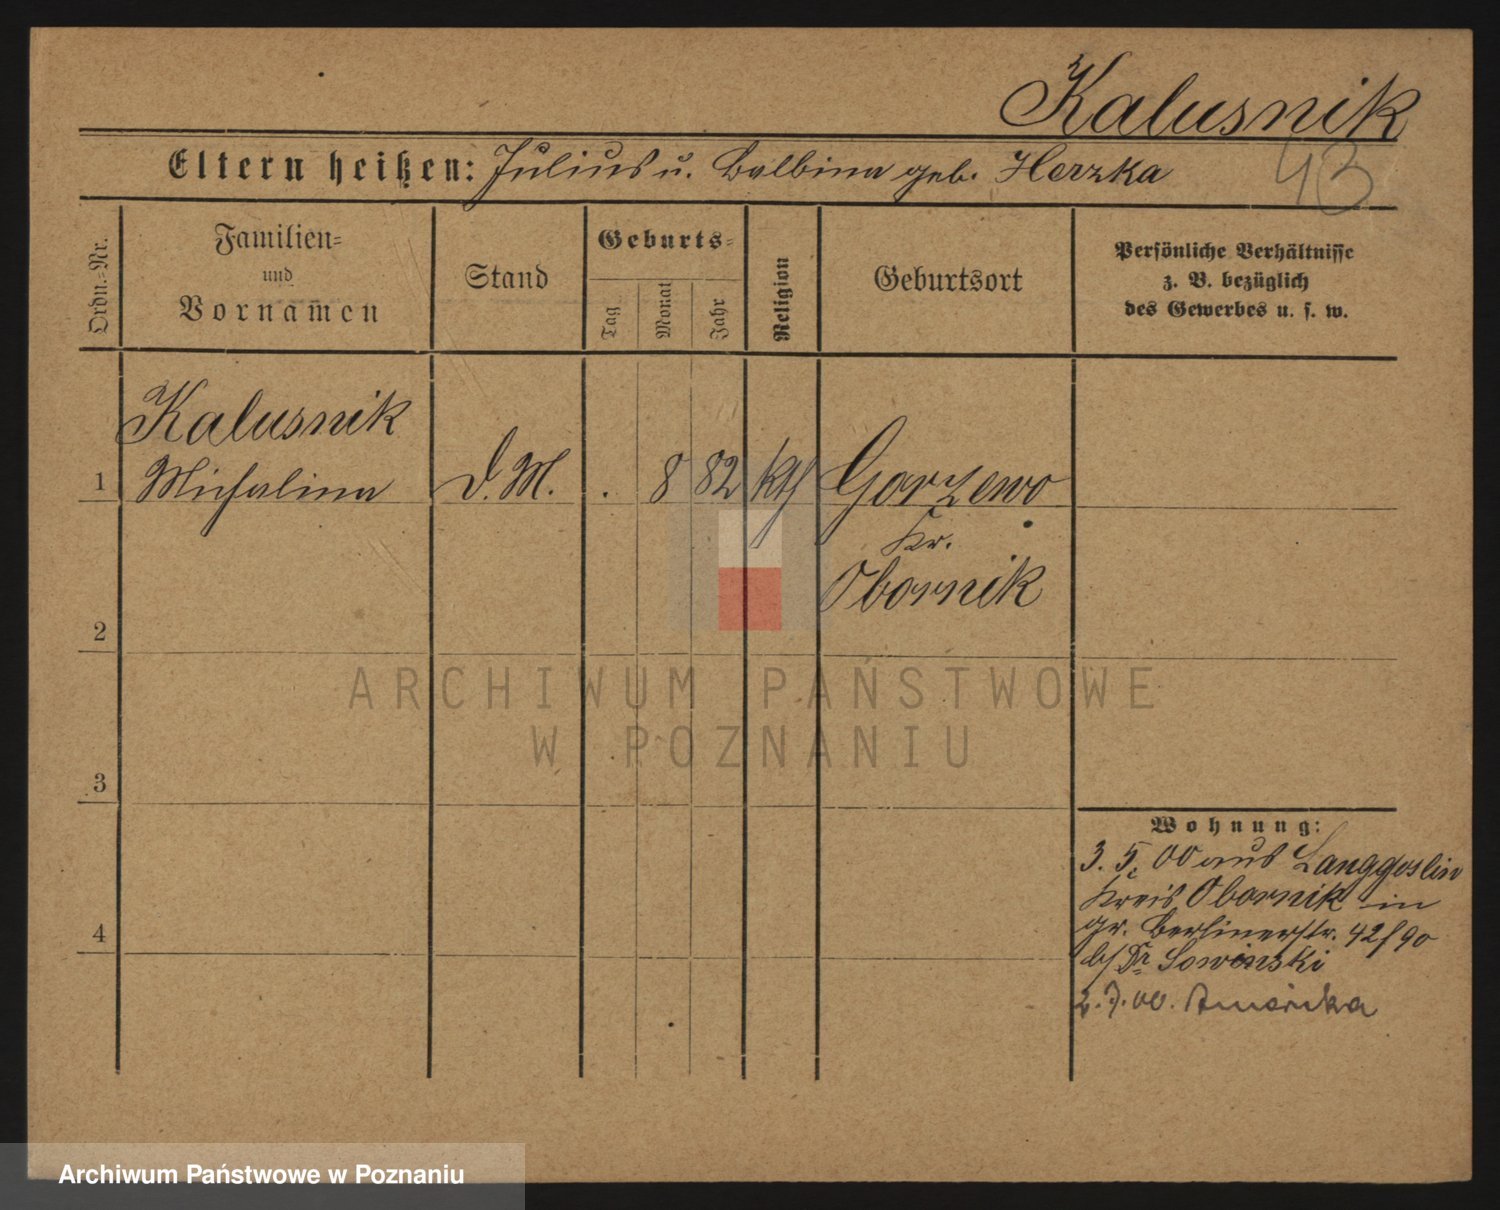 Kalusnik
Eltern heißen: Julius u. Balbina geb. Herzka
43
Ordn.-Nr.
Familien-
und
Vornamen
Stand
Geburts-
Tag
Monat
Jahr
Religion
Geburtsort
Persönliche Verhältnisse
z. B. bezüglich
des Gewerbes u. s. w.
Kalusnik
1 Michalina D.M. . 8 82 kth Gorzewo
Kr.
Obornik
2
ARCHIWUM PAŃSTWOWE
W POZNANIU
3
Wohnung:
3. 5. 00 aus Langgoslin
Kreis Obornik in
gr. Berlinerstr. 42/90
b/ Dr Sowinski
2. 7. 00. Amerika
4
Archiwum Państwowe w Poznaniu